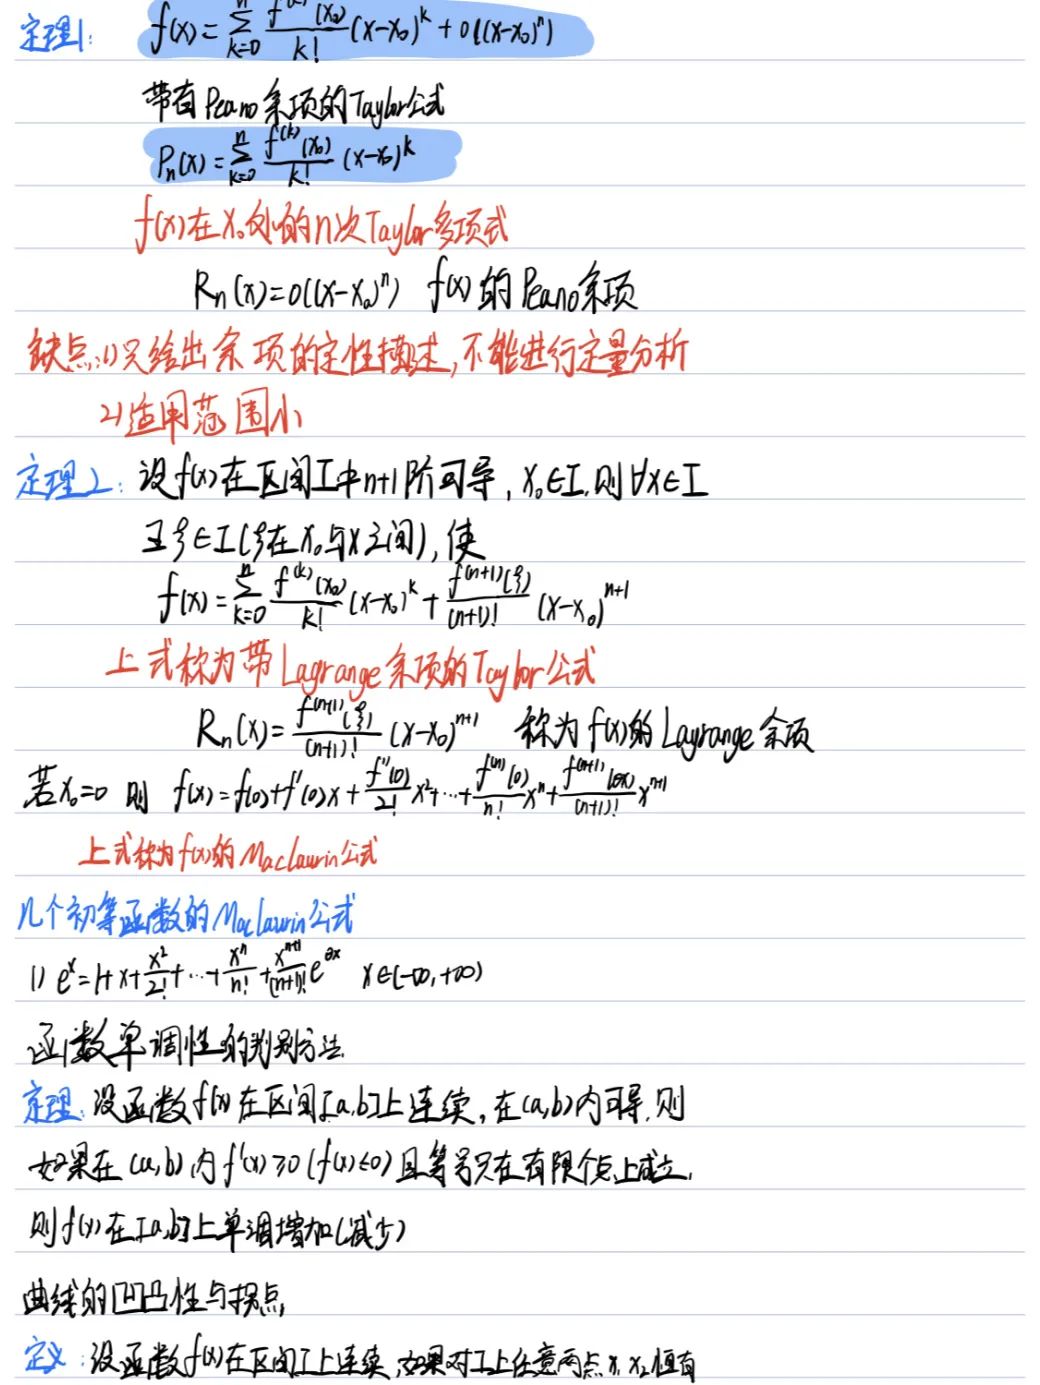 定理1: f(x)=∑_{k=0}^{n} \frac{f^{(k)}(x₀)}{k!}(x-x₀)^k+o((x-x₀)^n)
带有Peano余项的Taylor公式
P_n(x)=∑_{k=0}^{n} \frac{f^{(k)}(x₀)}{k!}(x-x₀)^k
f(x)在x₀处的n次Taylor多项式
R_n(x)=o((x-x₀)^n) f(x)的Peano余项
缺点:1)只给出余项的定性描述,不能进行定量分析
2)适用范围小
定理2: 设f(x)在区间I中n+1阶可导,x₀∈I,则∀x∈I
∃ξ∈I(ξ在x₀与x之间),使
f(x)=∑_{k=0}^{n} \frac{f^{(k)}(x₀)}{k!}(x-x₀)^k+\frac{f^{(n+1)}(ξ)}{(n+1)!}(x-x₀)^{n+1}
上式称为带Lagrange余项的Taylor公式
R_n(x)=\frac{f^{(n+1)}(ξ)}{(n+1)!}(x-x₀)^{n+1} 称为f(x)的Lagrange余项
若x₀=0 则 f(x)=f(0)+f'(0)x+\frac{f''(0)}{2!}x²+…+\frac{f^{(n)}(0)}{n!}x^n+\frac{f^{(n+1)}(θx)}{(n+1)!}x^{n+1}
上式称为f(x)的Maclaurin公式
几个初等函数的Maclaurin公式
1) e^x=1+x+\frac{x²}{2!}+…+\frac{x^n}{n!}+\frac{x^{n+1}}{(n+1)!}e^{θx} x∈(-∞,+∞)
函数单调性的判别方法
定理:设函数f(x)在区间[a,b]上连续,在(a,b)内可导,则
如果在(a,b)内f'(x)≥0(f(x)≤0)且等号只在有限个点上成立,
则f(x)在[a,b]上单调增加(减少)
曲线的凹凸性与拐点
定义:设函数f(x)在区间I上连续,如果对I上任意两点x₁x₂恒有